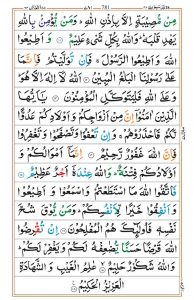 781
مِنْ مُّصِيْبَةٍ اِلَّا بِاِذْنِ اللّٰهِ ؕ وَمَنْ يُّؤْمِنْۢ بِاللّٰهِ
يَهْدِ قَلْبَهٗ ؕ وَاللّٰهُ بِكُلِّ شَیْءٍ عَلِيْمٌ ۝ وَاَطِيْعُوا
اللّٰهَ وَاَطِيْعُوا الرَّسُوْلَ ۚ فَاِنْ تَوَلَّيْتُمْ فَاِنَّمَا
عَلٰی رَسُوْلِنَا الْبَلٰغُ الْمُبِيْنُ ۝ اَللّٰهُ لَاۤ اِلٰهَ اِلَّا هُوَ ؕ وَعَلَی
اللّٰهِ فَلْيَتَوَكَّلِ الْمُؤْمِنُوْنَ ۝ يٰۤاَيُّهَا
الَّذِيْنَ اٰمَنُوْۤا اِنَّ مِنْ اَزْوَاجِكُمْ وَاَوْلَادِكُمْ عَدُوًّا
لَّكُمْ فَاحْذَرُوْهُمْ ۚ وَاِنْ تَعْفُوْا وَتَصْفَحُوْا وَتَغْفِرُوْا
فَاِنَّ اللّٰهَ غَفُوْرٌ رَّحِيْمٌ ۝ اِنَّمَاۤ اَمْوَالُكُمْ وَ
اَوْلَادُكُمْ فِتْنَةٌ ؕ وَاللّٰهُ عِنْدَهٗۤ اَجْرٌ عَظِيْمٌ ۝
فَاتَّقُوا اللّٰهَ مَا اسْتَطَعْتُمْ وَاسْمَعُوْا وَاَطِيْعُوْا
وَاَنْفِقُوْا خَيْرًا لِّاَنْفُسِكُمْ ؕ وَمَنْ يُّوْقَ شُحَّ
نَفْسِهٖ فَاُولٰٓئِكَ هُمُ الْمُفْلِحُوْنَ ۝ اِنْ تُقْرِضُوا
اللّٰهَ قَرْضًا حَسَنًا يُّضٰعِفْهُ لَكُمْ وَيَغْفِرْ لَكُمْ ؕ
وَاللّٰهُ شَكُوْرٌ حَلِيْمٌ ۝ عٰلِمُ الْغَيْبِ وَالشَّهَادَةِ
الْعَزِيْزُ الْحَكِيْمُ ۝